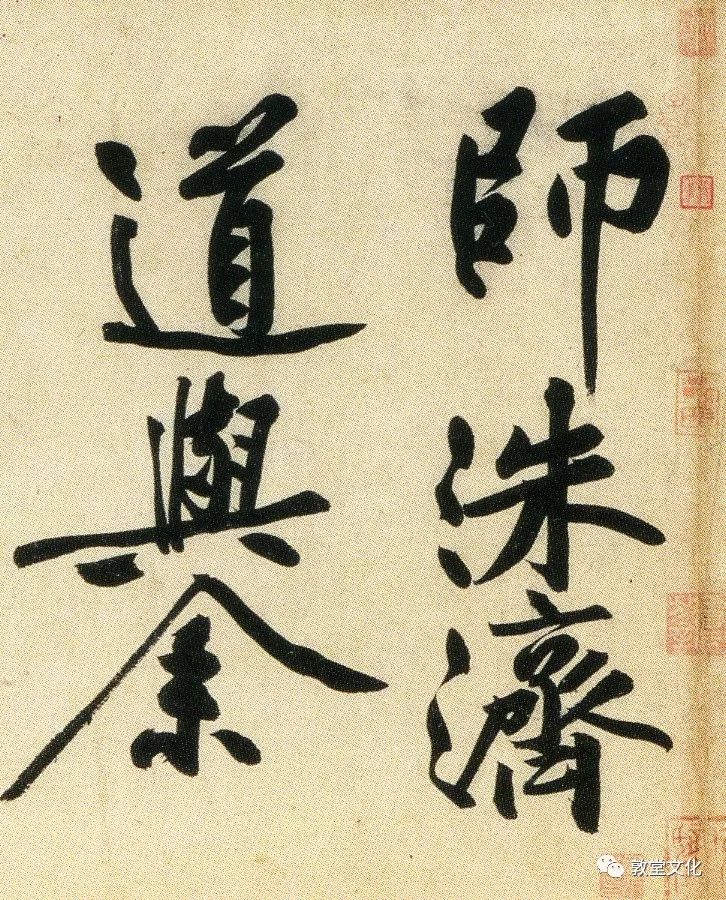 師洙濟
道與余
敦堂文化